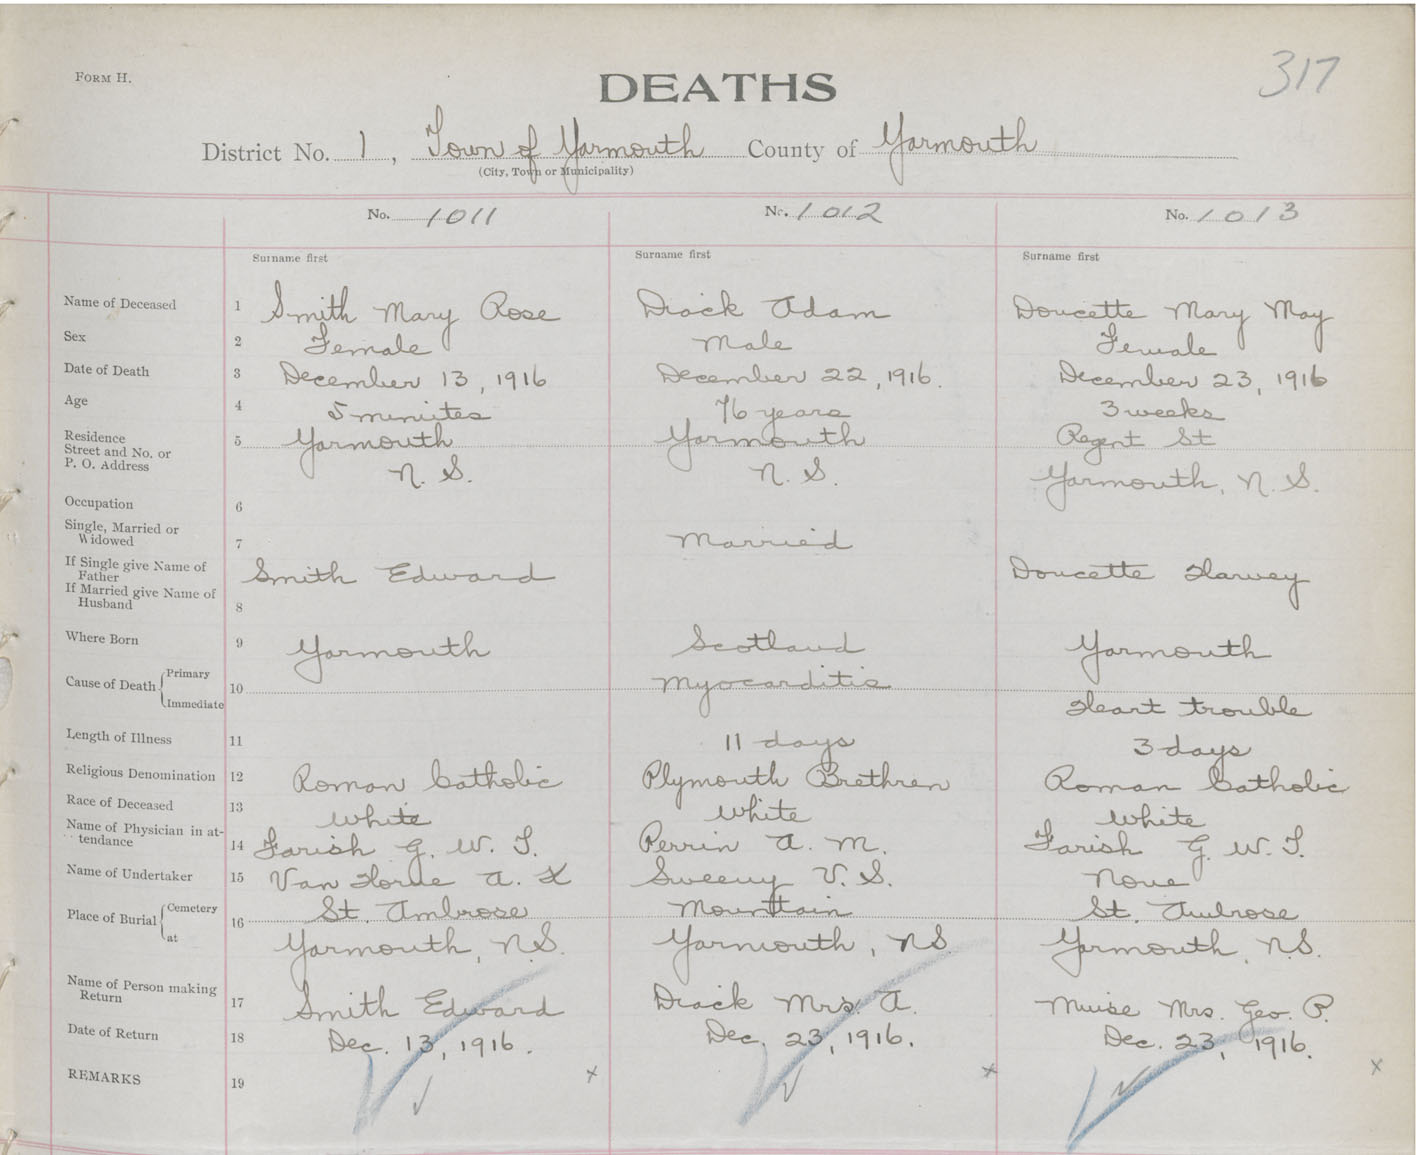 FORM H.
DEATHS
317
District No. 1, Town of Yarmouth County of Yarmouth
(City, Town or Municipality)
No. 1011 No. 1012 No. 1013
Surname first Surname first Surname first
Name of Deceased 1 Smith Mary Rose Diack Adam Doucette Mary May
Sex 2 Female Male Female
Date of Death 3 December 13, 1916 December 22, 1916. December 23, 1916
Age 4 5 minutes 76 years 3 weeks
Residence 5 Yarmouth Yarmouth Regent St
Street and No. or
P. O. Address N. S. N. S. Yarmouth, N. S.
Occupation 6
Single, Married or
Widowed 7 Married
If Single give Name of
Father Smith Edward Doucette Harvey
If Married give Name of
Husband 8
Where Born 9 Yarmouth Scotland Yarmouth
Cause of Death Primary 10 Myocarditis
Immediate Heart trouble
Length of Illness 11 11 days 3 days
Religious Denomination 12 Roman Catholic Plymouth Brethren Roman Catholic
Race of Deceased 13 White White White
Name of Physician in at-
tendance 14 Farish G. W. T. Perrin A. M. Farish G. W. T.
Name of Undertaker 15 Van Horne A. K Sweeny V. S. None
Place of Burial Cemetery 16 St. Ambrose Mountain St. Ambrose
at Yarmouth, N.S. Yarmouth, NS Yarmouth, N.S.
Name of Person making
Return 17 Smith Edward Diack Mrs. A. Muise Mrs. Geo. P.
Date of Return 18 Dec. 13, 1916. Dec. 23, 1916. Dec. 23, 1916.
REMARKS 19 x x x